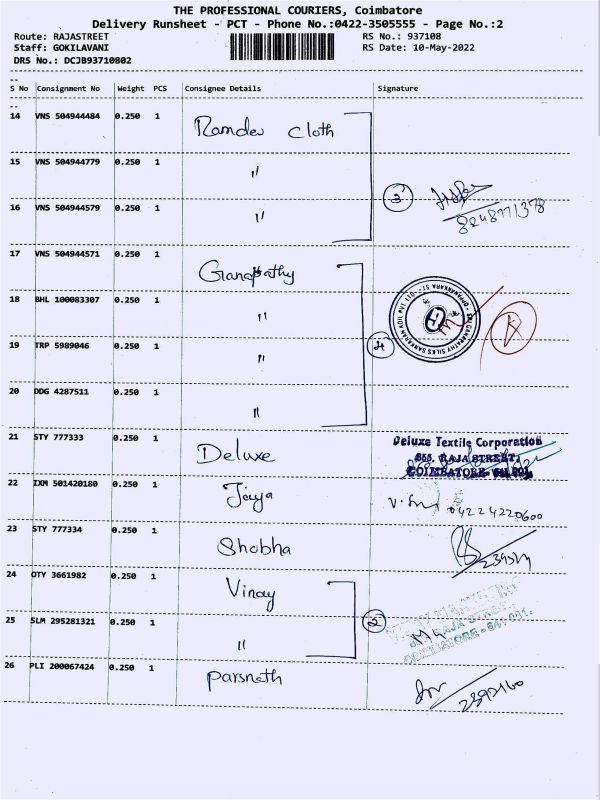 THE PROFESSIONAL COURIERS, Coimbatore
Delivery Runsheet - PCT - Phone No.:0422-3505555 - Page No.:2
Route: RAJASTREET RS No.: 937108
Staff: GOKILAVANI RS Date: 10-May-2022
DRS No.: DCJB93710802
--
S No Consignment No Weight PCS Consignee Details Signature
--
14 VNS 504944484 0.250 1 Ramdev cloth
15 VNS 504944779 0.250 1 "
16 VNS 504944579 0.250 1 " 3
8248771378
17 VNS 504944571 0.250 1 Ganapathy
18 BHL 100083307 0.250 1 "
19 TRP 5989046 0.250 1 " 4
20 DDG 4287511 0.250 1 "
21 STY 777333 0.250 1 Deluxe Deluxe Textile Corporation
RAJA STREET,
COIMBATORE
22 IXM 501420180 0.250 1 Jeya 04224220600
23 STY 777334 0.250 1 Shobha
24 OTY 3661982 0.250 1 Vinay
25 SLM 295281321 0.250 1 " 2
RAJA STREET
COIMBATORE - 641 001.
26 PLI 200067424 0.250 1 Parsnath
2392160